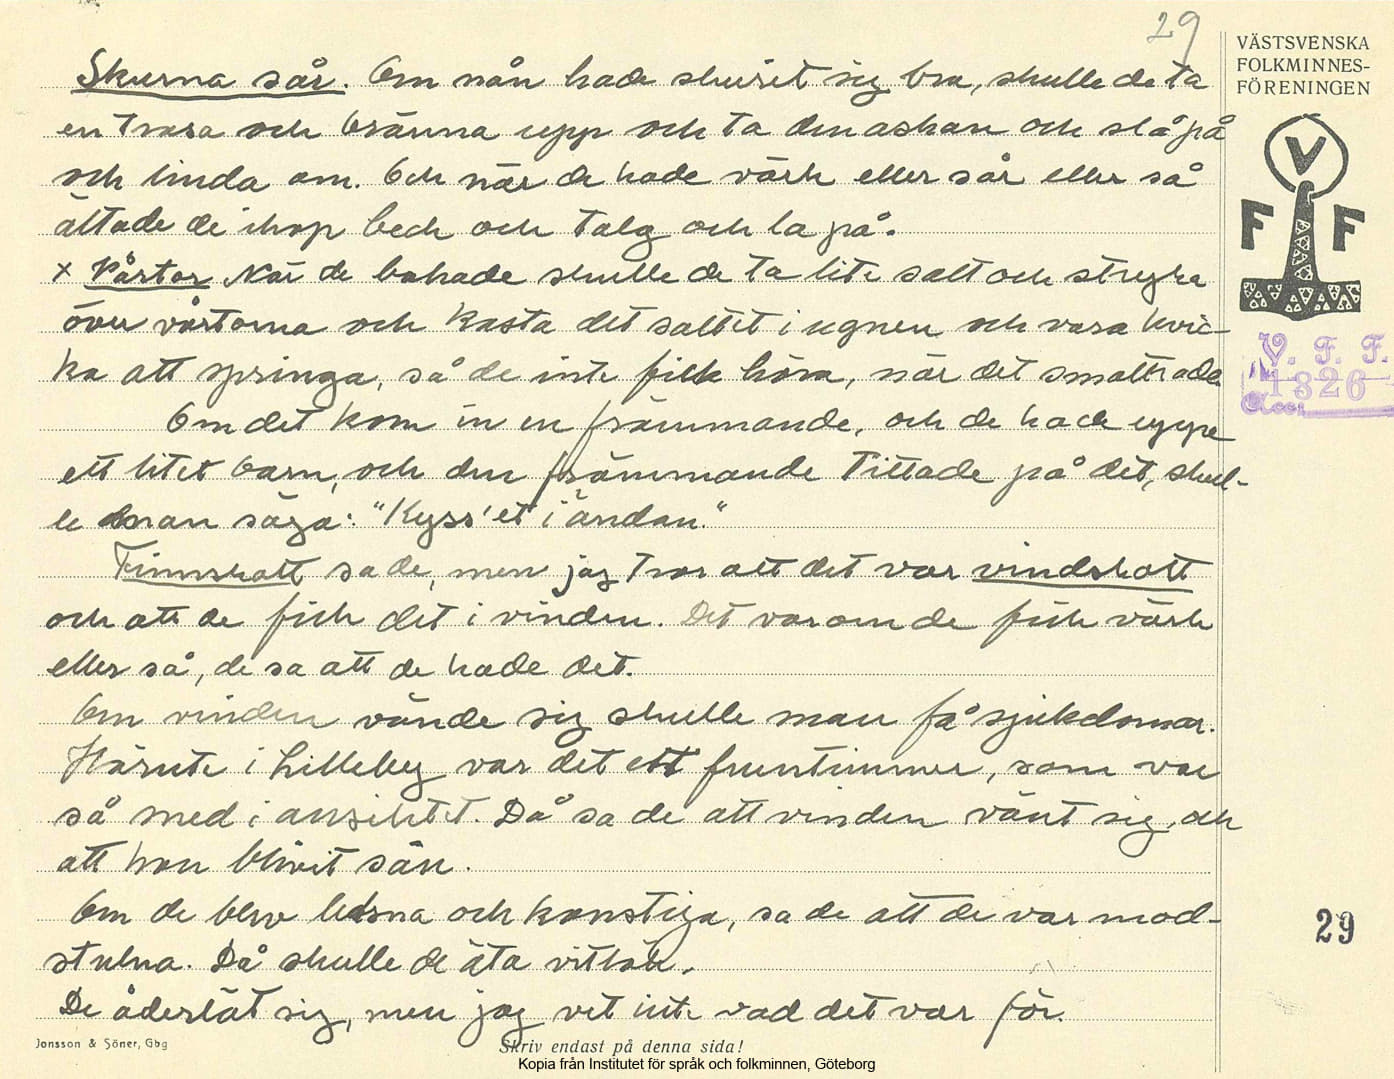 29
VÄSTSVENSKA
FOLKMINNES-
FÖRENINGEN
V
F F
V. F. F.
1326
Acc.
Skurna sår. Om nån hade skurit sig bra, skulle de ta
en trasa och bränna upp och ta den askan och slå på
och linda om. Och när de hade värk eller sår eller så
ältade de ihop beck och talg och la på.
x Vårtor När de bakade skulle de ta lite salt och stryka
över vårtorna och kasta det saltet i ugnen och vara kvic-
ka att springa, så de inte fick höra, när det smattrade
Om det kom in en främmande, och de hade uppe
ett litet barn, och den främmande tittade på det, skul-
le man säga: "Kyss' et i ändan."
Finnskott sa de, men jag tror att det var vindskott
och att de fick det i vinden. Det var om de fick värk
eller så, de sa att de hade det.
Om vinden vände sig skulle man få sjukdomar.
Härute i Lilleby var det ett fruntimmer, som var
så med i ansiktet. Då sa de att vinden vänt sig, och
att hon blivit sån.
Om de blev ledsna och konstiga, sa de att de var mod-
stulna. Då skulle de äta vitlök.
De åderlät sig, men jag vet inte vad det var för.
29
Jonsson & Söner, Gbg
Skriv endast på denna sida!
Kopia från Institutet för språk och folkminnen, Göteborg